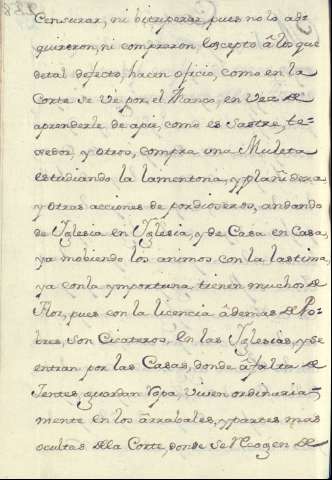 Censurar, ni bituperar, pues no lo ad-
quirieron, ni compraron, excepto â los que
de tal defecto, hacen oficio, como en la
Corte se vé por el Manco, en Vez de
aprenderle de apie, como es Sastre, te-
xedor, y otros, compra una Muleta
estudiando la lamentona, y plañidera
y otras acciones de pordioseros, andando
de Yglesia en Yglesia, y de Casa en Casa,
ya mobiendo los animos con la lastima,
ya con la ymportuna, tienen mucho de
Flor, pues con la licencia âdemas de Po-
bres, son Cicateros, en las Yglesias, y se
entran por las Casas, donde â falta de
Jentes, guardan Ropa, viven ordinaria-
mente en los ârrabales, y partes mas
ocultas de la Corte, donde se Recogen de